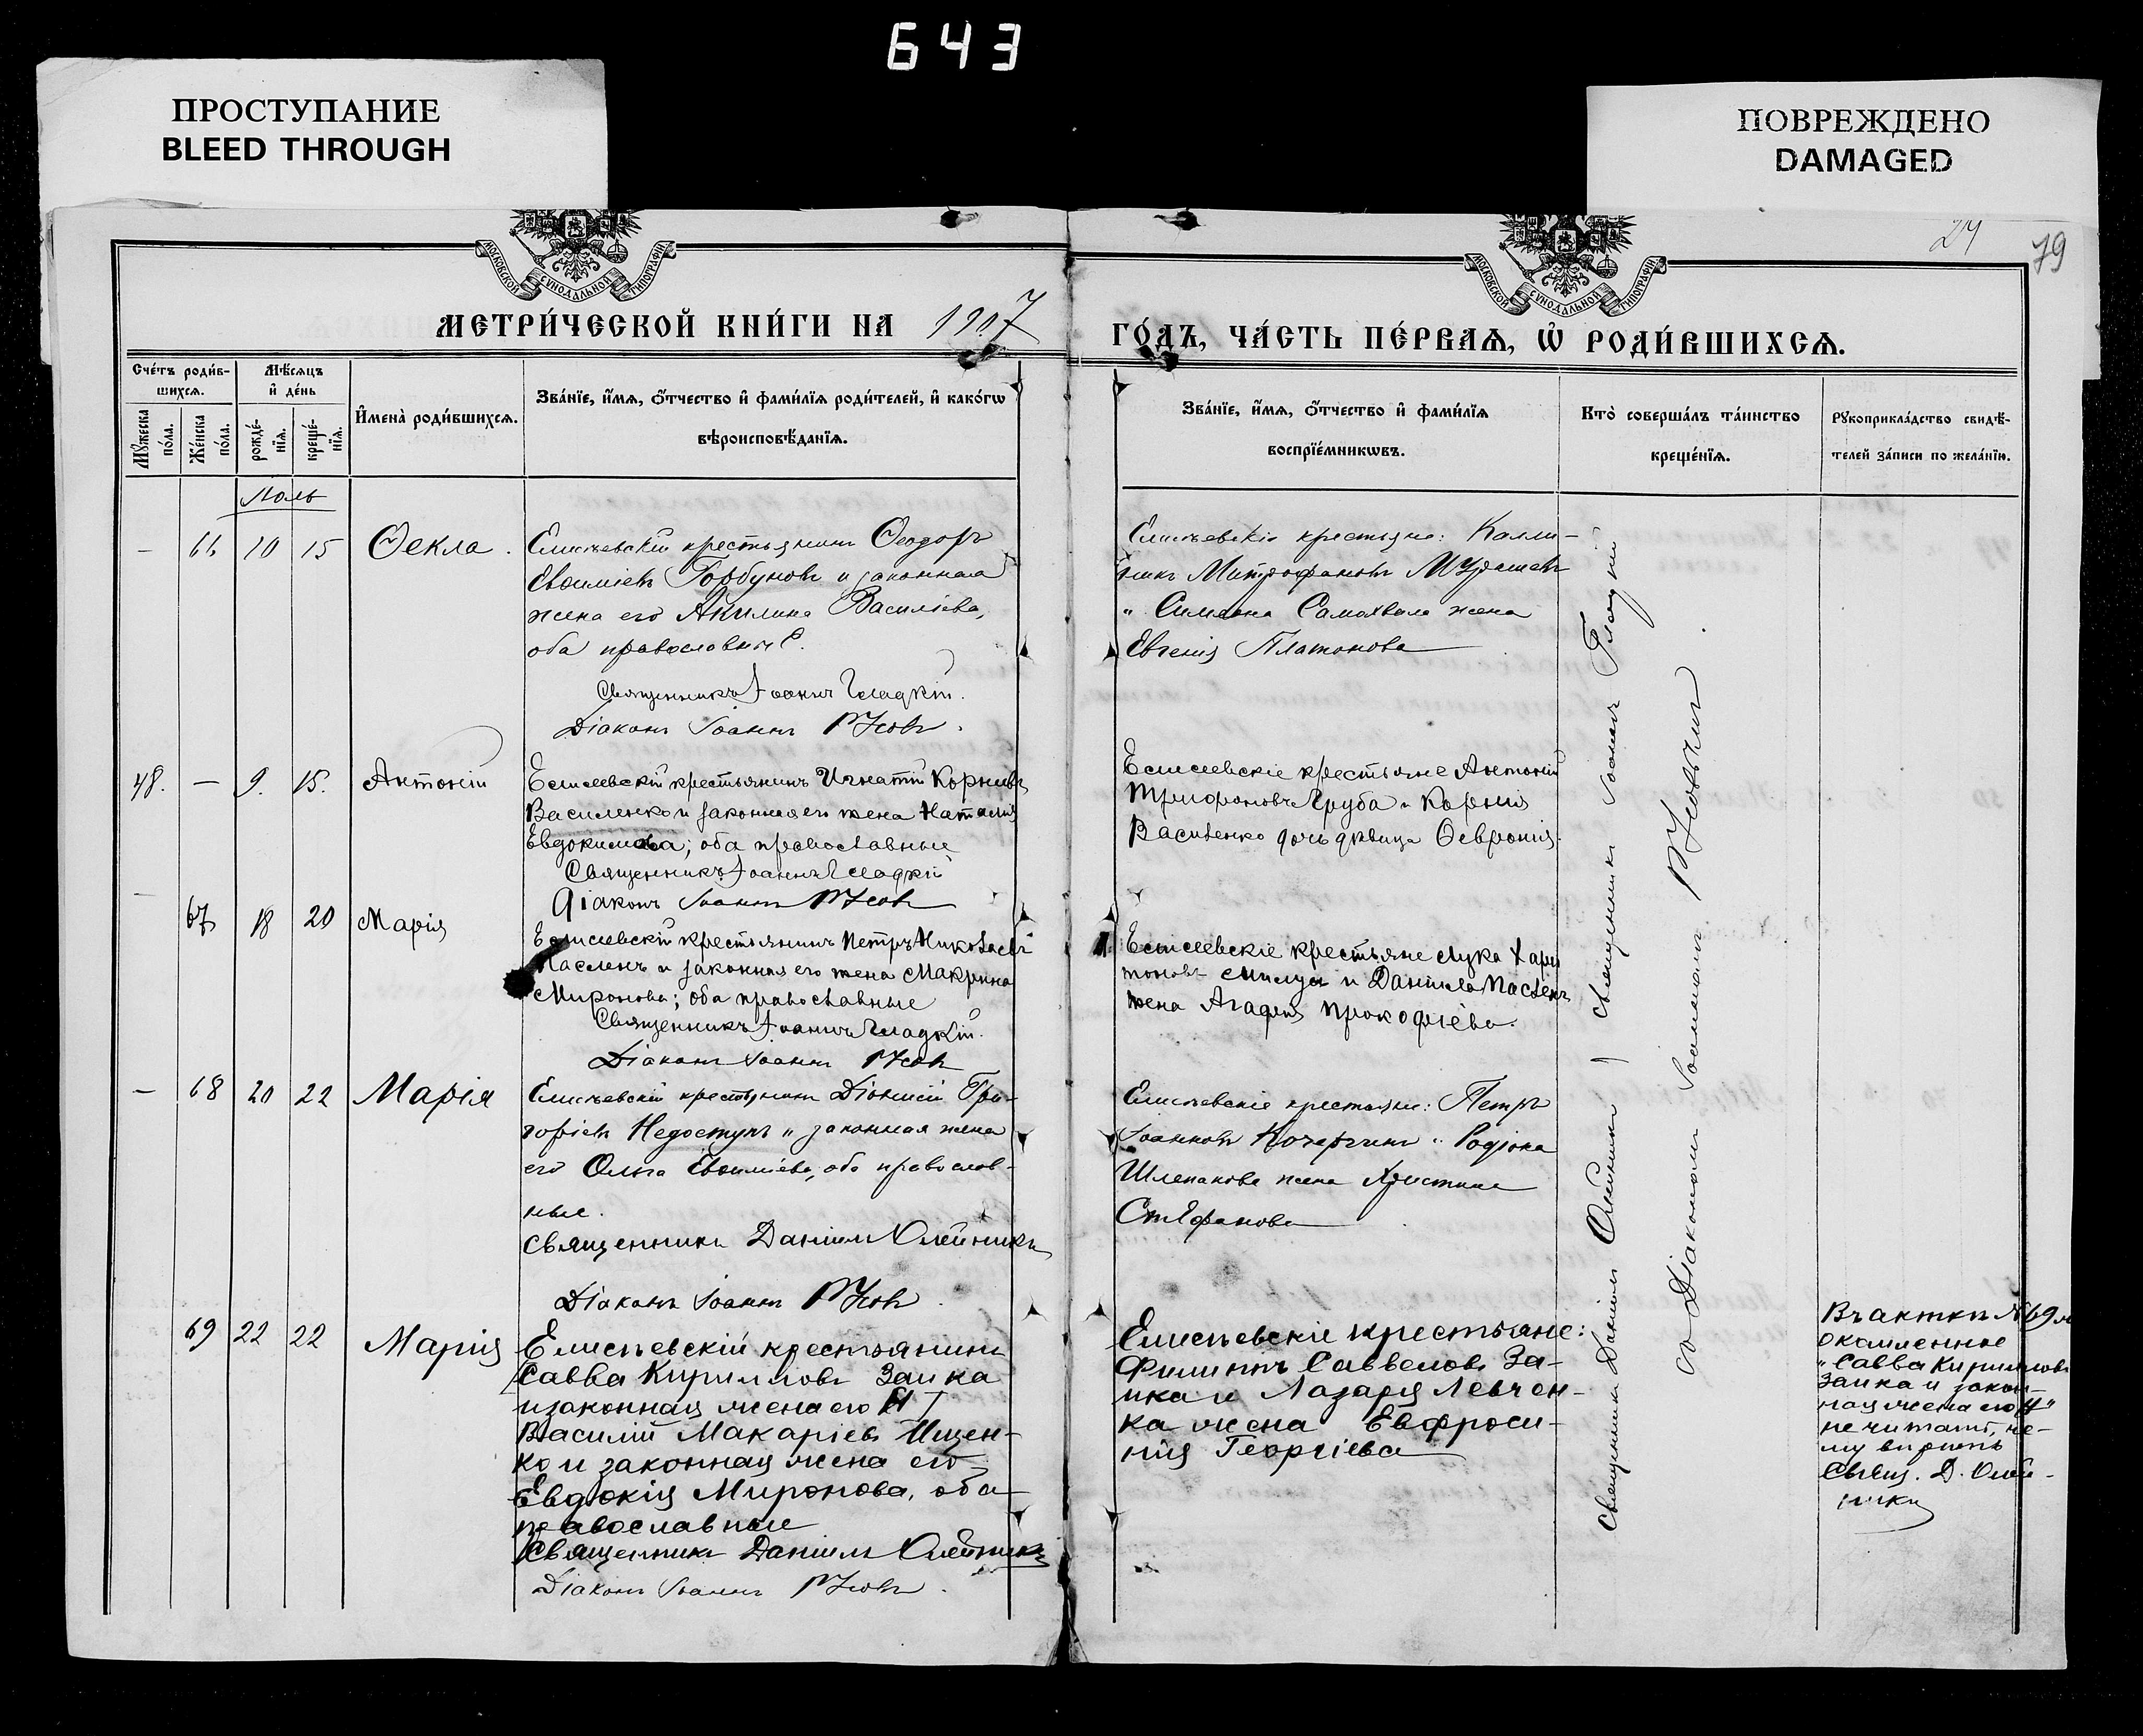 643
ПРОСТУПАНИЕ
BLEED THROUGH
ПОВРЕЖДЕНО
DAMAGED
МОСКОВСКОЙ СѴНОДАЛЬНОЙ ТИПОГРАФІИ
МОСКОВСКОЙ СѴНОДАЛЬНОЙ ТИПОГРАФІИ
24
79
МЕТРИ́ЧЕСКОЙ КНИ́ГИ НА 1907
ГО́ДЪ, ЧА́СТЬ ПЕ́РВАѦ, Ѡ҆ РОДИ́ВШИХСѦ.
Сче́тъ роди́в-
шихсѧ.
Мꙋ́жеска по́ла.
Же́нска по́ла.
Мѣ́сѧцъ
и҆ де́нь
рожде́-нїѧ.
креще́-нїѧ.
И҆мена̀ роди́вшихсѧ.
Зва́нїе, и҆́мѧ, ѻ҆́тчество и҆ фами́лїѧ роди́телей, и҆ како́гѡ
вѣроисповѣ́данїѧ.
Зва́нїе, и҆́мѧ, ѻ҆́тчество и҆ фами́лїѧ
воспрїе́мникѡвъ.
Кто̀ соверша́лъ та́инство
креще́нїѧ.
Рꙋкоприкла́дство свидѣ́-
телей за́писи по жела́нїю.
Іюль
— 66 10 15 Ѳекла.
Елисѣевскій крестьянинъ Ѳеодоръ
Евѳиміевъ Горбуновъ и законная
жена его Акилина Василіева,
оба православные.
Священникъ Іоаннъ Гладкій.
Діаконъ Іоаннъ Усовъ.
Елисѣевскіе крестьяне: Калли-
никъ Митрофановъ
и Симеона Самохвала жена
Евгенія Платонова
48. — 9. 15. Антоній
Елисеевскій крестьянинъ Игнатій Корніевъ
Василенко и законная его жена Наталія
Евдокимова; оба православные
Священникъ Іоаннъ Гладкій
Діаконъ Іоаннъ Усовъ
Елисеевскіе крестьяне Антоній
Трифоновъ Груба и Корнія
Василенко дочь дѣвица Февронія.
— 67 18 20 Марія
Елисеевскій крестьянинъ Петръ Николаевъ
Пасленъ и законная его жена Макрина
Миронова; оба православные
Священникъ Іоаннъ Гладкій.
Діаконъ Іоаннъ Усовъ
Елисеевскіе крестьяне Лука Хари
тоновъ и Даніила Пасленъ
жена Агафія Прокофіева.
— 68 20 22 Марія
Елисѣевскій крестьянинъ Діонисій Гри-
горіевъ Недоступъ и законная жена
его Ольга Евѳиміева, оба православ-
ные.
Священникъ Даніилъ Олейникъ
Діаконъ Іоаннъ Усовъ.
Елисѣевскіе крестьяне: Петръ
Іоанновъ Кочергинъ и Родіона
Шлепакова жена Христина
Стефанова
69 22 22 Марія
Елисѣевскій крестьянинъ
Савва Кирилловъ Заика
и законная жена его
Василій Макаріевъ Ищен-
ко и законная жена его
Евдокія Миронова, оба
православные
Священникъ Даніилъ Олейникъ
Діаконъ Іоаннъ Усовъ.
Елисѣевскіе крестьяне:
Филиппъ Саввеловъ За-
ика и Лазаря Левчен-
ка жена Евфроси-
нія Георгіева
Священники Даніилъ Олейникъ и священникъ Іоаннъ Гладкій
съ Діакономъ Іоанномъ Усовымъ.
Въ актѣ №69
"Савва Кирилловъ
Заика и закон-
ная жена его"
не читать, че-
му вѣрить
Свящ. Д. Олей-
никъ